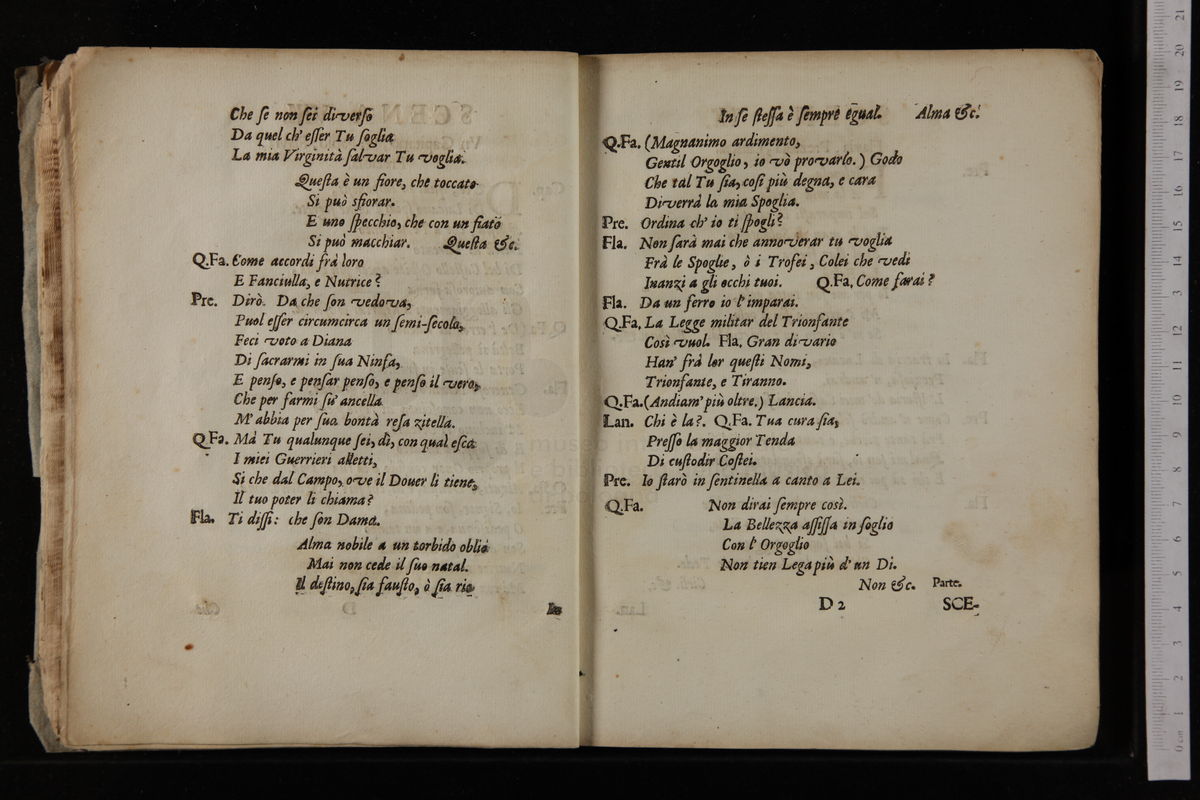 Che ſe non ſei diverſo
Da quel ch' eſſer Tu ſoglia
La mia Virginità ſalvar Tu voglia.
Queſta è un fiore, che toccato
Si può sfiorar.
E uno ſpecchio, che con un fiato
Si può macchiar. Queſta &c.
Q.Fa. Come accordi frà loro
E Fanciulla, e Nutrice?
Pre. Dirò. Da che ſon vedova,
Puol eſſer circumcirca un ſemi-ſecolo,
Feci voto a Diana
Di ſacrarmi in ſua Ninfa,
E penſo, e penſar penſo, e penſo il vero,
Che per farmi ſu' ancella
M' abbia per ſua bontà reſa zitella.
Q.Fa. Mà Tu qualunque ſei, dì, con qual eſca
I miei Guerrieri alletti,
Si che dal Campo, ove il Dover li tiene,
Il tuo poter li chiama?
Fla. Ti diſſi: che ſon Dama.
Alma nobile a un torbido oblio
Mai non cede il ſuo natal.
Il deſtino, ſia fauſto, ò ſia rio
In
In ſe ſteſſa è ſempre egual. Alma &c.
Q.Fa. (Magnanimo ardimento,
Gentil Orgoglio, io vò provarlo.) Godo
Che tal Tu ſia, coſi più degna, e cara
Diverrà la mia Spoglia.
Pre. Ordina ch' io ti ſpogli?
Fla. Non ſarà mai che annoverar tu voglia
Frà le Spoglie, ò i Trofei, Colei che vedi
Inanzi a gli occhi tuoi. Q.Fa. Come farai?
Fla. Da un ferro io l' imparai.
Q.Fa. La Legge militar del Trionfante
Così vuol. Fla. Gran divario
Han' frà lor queſti Nomi,
Trionfante, e Tiranno.
Q.Fa. (Andiam' più oltre.) Lancia.
Lan. Chi è la?. Q.Fa. Tua cura ſia,
Preſſo la maggior Tenda
Di cuſtodir Coſtei.
Pre. Io ſtarò in ſentinella a canto a Lei.
Q.Fa. Non dirai ſempre così.
La Bellezza aſſiſſa in ſoglio
Con l' Orgoglio
Non tien Lega più d' un Di.
Non &c. Parte.
D 2 SCE-